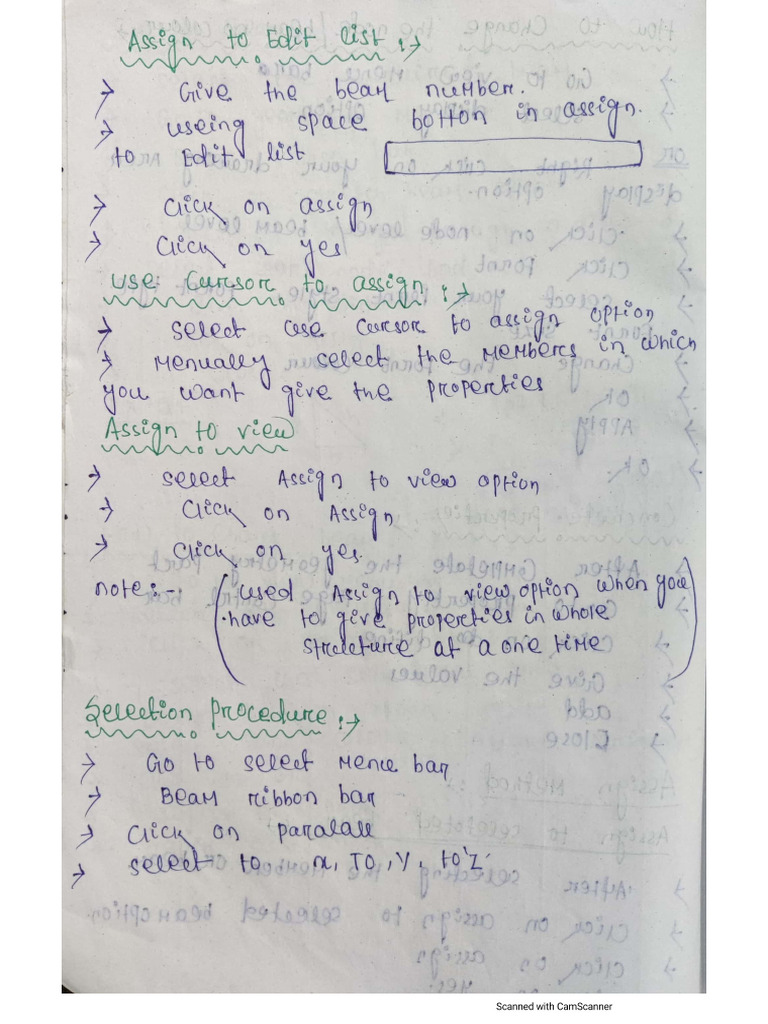 Assign to Edit list :→
→ Give the beam number.
→ useing space botton in assign.
to Edit list
→ Click on assign
→ Click on yes
use Cursor to assign :→
→ select use cursor to assign option
→ Menually select the members in which
you want give the properties
Assign to view
→ select Assign to view option
→ Click on Assign
→ Click on yes.
note:- (used Assign to view option when you
have to give properties in whore
structure at a one time)
Selection procedure :→
→ Go to select Menu bar
→ Beam ribbon bar
→ Click on paralall
→ select to x, To, Y, to'Z'
Scanned with CamScanner